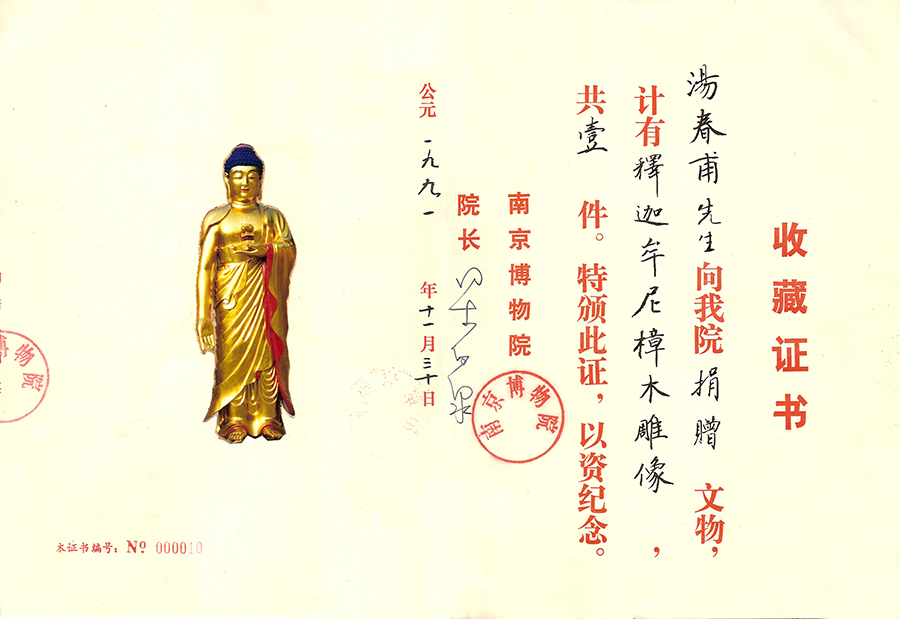 收藏证书
湯春甫先生向我院捐贈文物，
计有釋迦牟尼樟木雕像，
共壹件。特颁此证，以资纪念。
南京博物院
院长
南京博物院
公元一九九一年十一月三十日
本证书编号：№ 000010
博物院